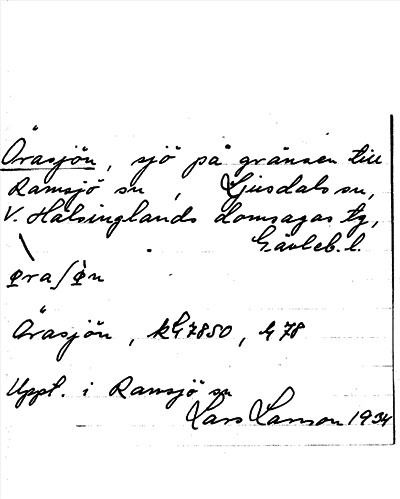 Örasjön, sjö på gränsen till
Ramsjö sn, Ljusdals sn,
V. Hälsinglands domsagas tg,
Gävleb. l.
Örasjön, kG7850, G 78
Uppt. i Ramsjö sn
Lars Larsson 1934